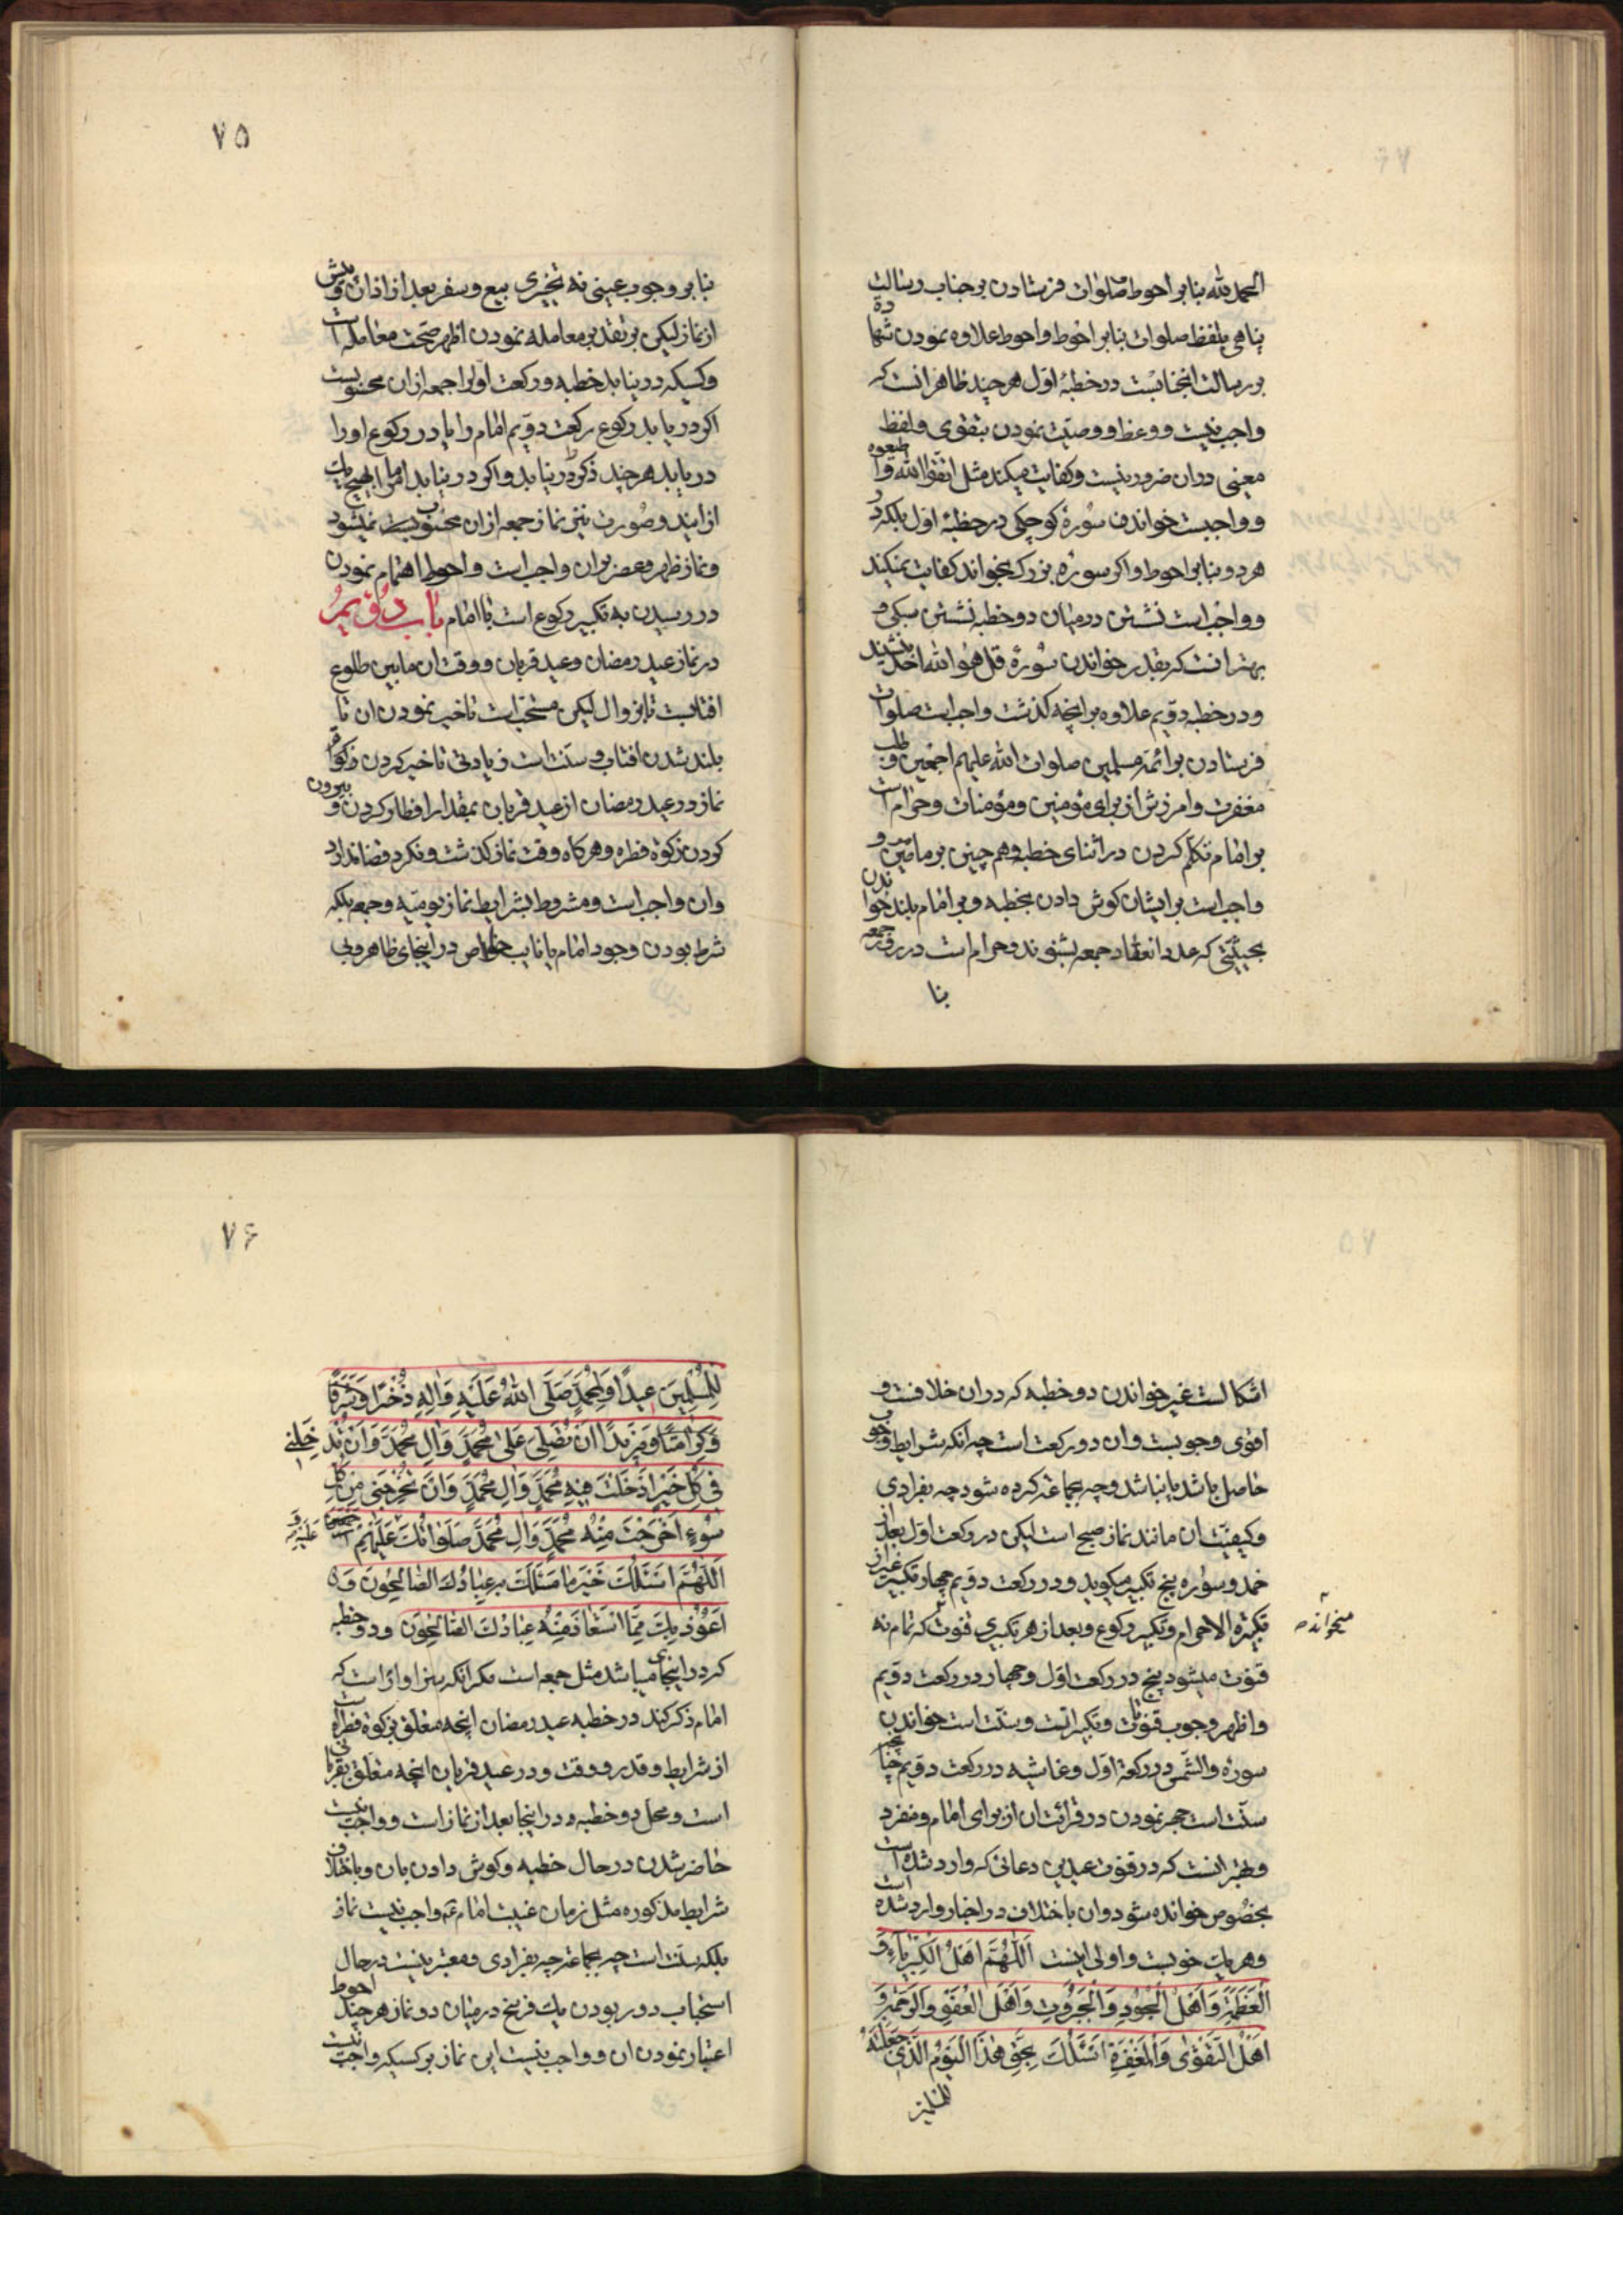 الحمد لله بنا بر احوط صلوات فرستادن بر جناب رسالت
پناهی بلفظ صلوات بنا بر احوط و احوط علاوه نمودن شهاده
بر رسالت انجنابست در خطبهٔ اول هر چند ظاهر انست که
واجب نیست و وعظ و وصیت نمودن بتقوی و لفظ
معینی در ان ضرور نیست و کفایت میکند مثل اتقوا الله و اطیعوه
و واجبست خواندن سورهٔ کوچکی در خطبهٔ اول بلکه در
هر دو بنا بر احوط و اکر سورهٔ بزرک بخواند کفایت نمیکند
و واجب است نشستن در میان دو خطبه نشستن سبکی و
بهتر انست که بقدر خواندن سورهٔ قل هو الله احد بنشیند
و در خطبه دویم علاوه بر انچه کذشت واجب است صلوات
فرستادن بر ائمه مسلمین صلوات الله علیهم اجمعین و طلب
مغفرت و امرزش از برای مؤمنین و مؤمنات و حرام است
بر امام تکلم کردن در اثنای خطبه و هم چنین بر مامومین و
واجب است بر ایشان کوش دادن بخطبه و بر امام بلند خواندن
بحیثیتی که عدد انعقاد جمعه بشنوند و حرام است در روز جمعه
بنا
۷۵
بنا بر وجوب عینی نه تخییری بیع و سفر بعد از اذان و پیش
از نماز لیکن بر تقدیر معامله نمودن اظهر صحت معامله است
و کسیکه در نیابد خطبه و رکعت اولرا جمعه از ان محسوبست
اکر در یابد رکوع رکعت دویم امام را یا در رکوع او را
در یابد هر چند ذکر را در نیابد و اکر در نیابد امام را بهیچ یک
از ایند و صورت نیتی نماز جمعه از ان محسوب نمیشود
و نماز ظهر و عصر بر ان واجب است و احوط اهتمام نمودن
در رسیدن به تکبیر رکوع است با امام باب دویم
در نماز عید رمضان و عید قربان و وقت ان ما بین طلوع
افتابست تا بزوال لیکن مستحب است تاخیر نمودن ان تا
بلند شدن افتاب و سنت است زیادتی تاخیر کردن
نماز در عید رمضان از عید قربان بمقدار افطار کردن و بیرون
کردن زکوة فطره و هر کاه وقت نماز کذشت و نکرد قضا ندارد
وان واجب است و مشروط بشرایط نماز یومیه و جمعه بلکه
شرط بودن وجود امام یا نایب خاص در اینجای ظاهر و بی
اشکالست غیر خواندن دو خطبه که در ان خلافست و
اقوی وجوبست و ان دو رکعت است چه انکه شرایط وجوب
حاصل باشد یا نباشد و چه بجماعة کرده شود چه بفرادی
و کیفیت ان مانند نماز صبح است لیکن در رکعت اول بعد از
حمد و سوره پنج تکبیر میکوید و در رکعت دویم چهار تکبیر غیر از
تکبیرة الاحرام و تکبیر رکوع و بعد از هر تکبیری قنوت که تمام نه
میخواند
قنوت میشود پنج در رکعت اول و چهار در رکعت دویم
و اظهر وجوب قنوتات و تکبیراتست و سنت است خواندن
سورهٔ والشمس در رکعة اول و غاشیه در رکعت دویم
سنت است جهر نمودن در قرائت ان از برای امام و منفرد
و بهتر انست که در قنوت عیدین دعائی که وارد شده است
بخصوص خوانده شود و ان باختلاف در اخبار وارد شده است
و هر یک خوبست و اولی اینست اللهم اهل الکبریاء و
العظمة و اهل الجود و الجبروت و اهل العفو و الرحمة و
اهل التقوی و المغفرة اسئلک بحق هذا الیوم الذی جعلته
للمسلمین
۷۶
للمسلمین عیدا و لمحمد صلی الله علیه و اله ذخرا و شرفا
و کرامتا و مزیدا ان تصلی علی محمد و ال محمد و ان تدخلنی
فی کل خیر ادخلت فیه محمد و ال محمد و ان تخرجنی من کل
سوء اخرجت منه محمد و ال محمد صلواتک علیهم اجمعین علیه و
اللهم اسئلک خیر ما سئلک به عبادک الصالحون و
اعوذ بک مما استعاذ منه عبادک الصالحون و دو خطبه
که در اینجا میباشد مثل جمعه است مکر انکه سزاوار است که
امام ذکر کند در خطبه عید رمضان انچه متعلق بزکوة فطره است
از شرایط و قدر و وقت و در عید قربان انچه متعلق بقربانی
است و محل دو خطبه در اینجا بعد از نماز است و واجب نیست
حاضر شدن در حال خطبه و کوش دادن بان و با اختلاف
شرایط مذکوره مثل زمان غیبت امام ع واجب نیست نماز
بلکه سنت است چه بجماعة چه بفرادی و معتبر نیست در حال
استحباب دور بودن یک فرسخ در میان دو نماز هر چند احوط
اعتبار نمودن ان و واجب نیست این نماز بر کسیکه واجب نیست